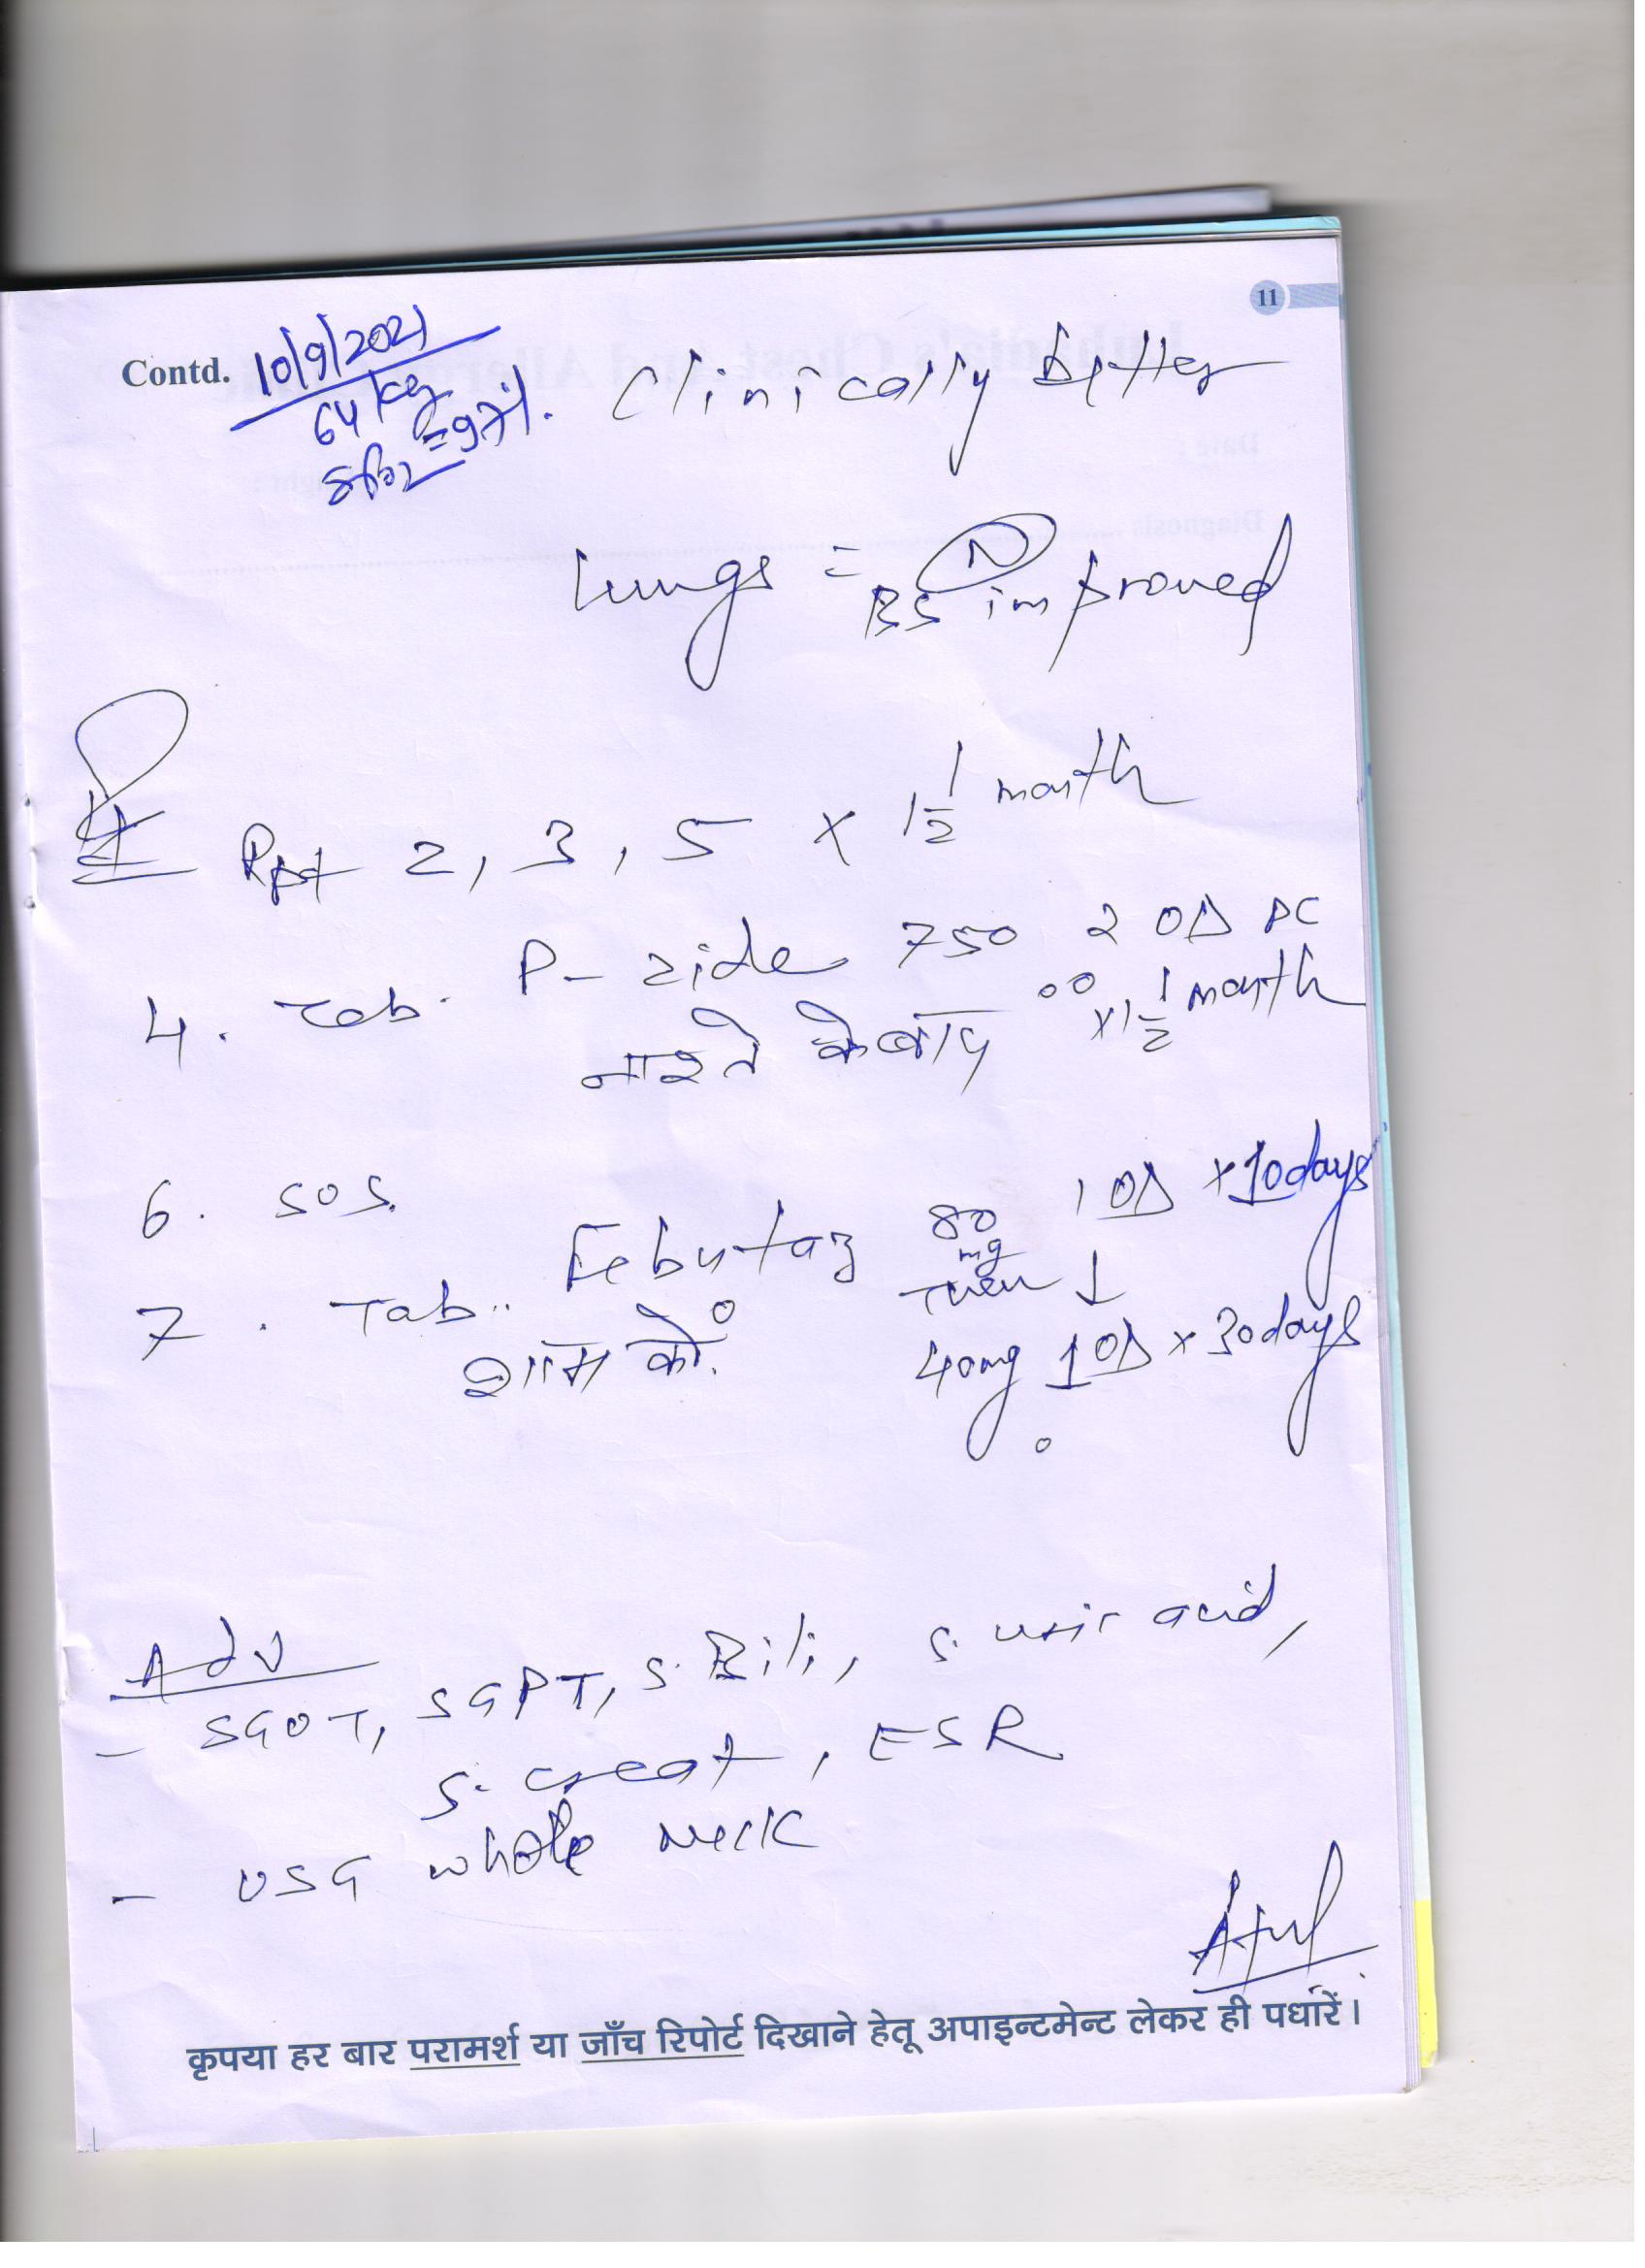 11
Contd. 10/9/2021
64 kg
SPO2 = 97%.
Clinically better
Lungs = N
BS improved
Rpt 2, 3, 5 x 1 1/2 month
4. Tab. P-zide 750 2 OD PC
नाश्ते के बाद 00 x 1 1/2 month
6. SOS.
7. Tab.. Febutaz 80 mg 1 OD x 10 days
Then ↓
शाम को. 40mg 1 OD x 30 days
Adv
- SGOT, SGPT, S. Bili, S. uric acid,
S. creat, ESR
- USG whole neck
Atul
कृपया हर बार परामर्श या जाँच रिपोर्ट दिखाने हेतू अपाइन्टमेन्ट लेकर ही पधारें।